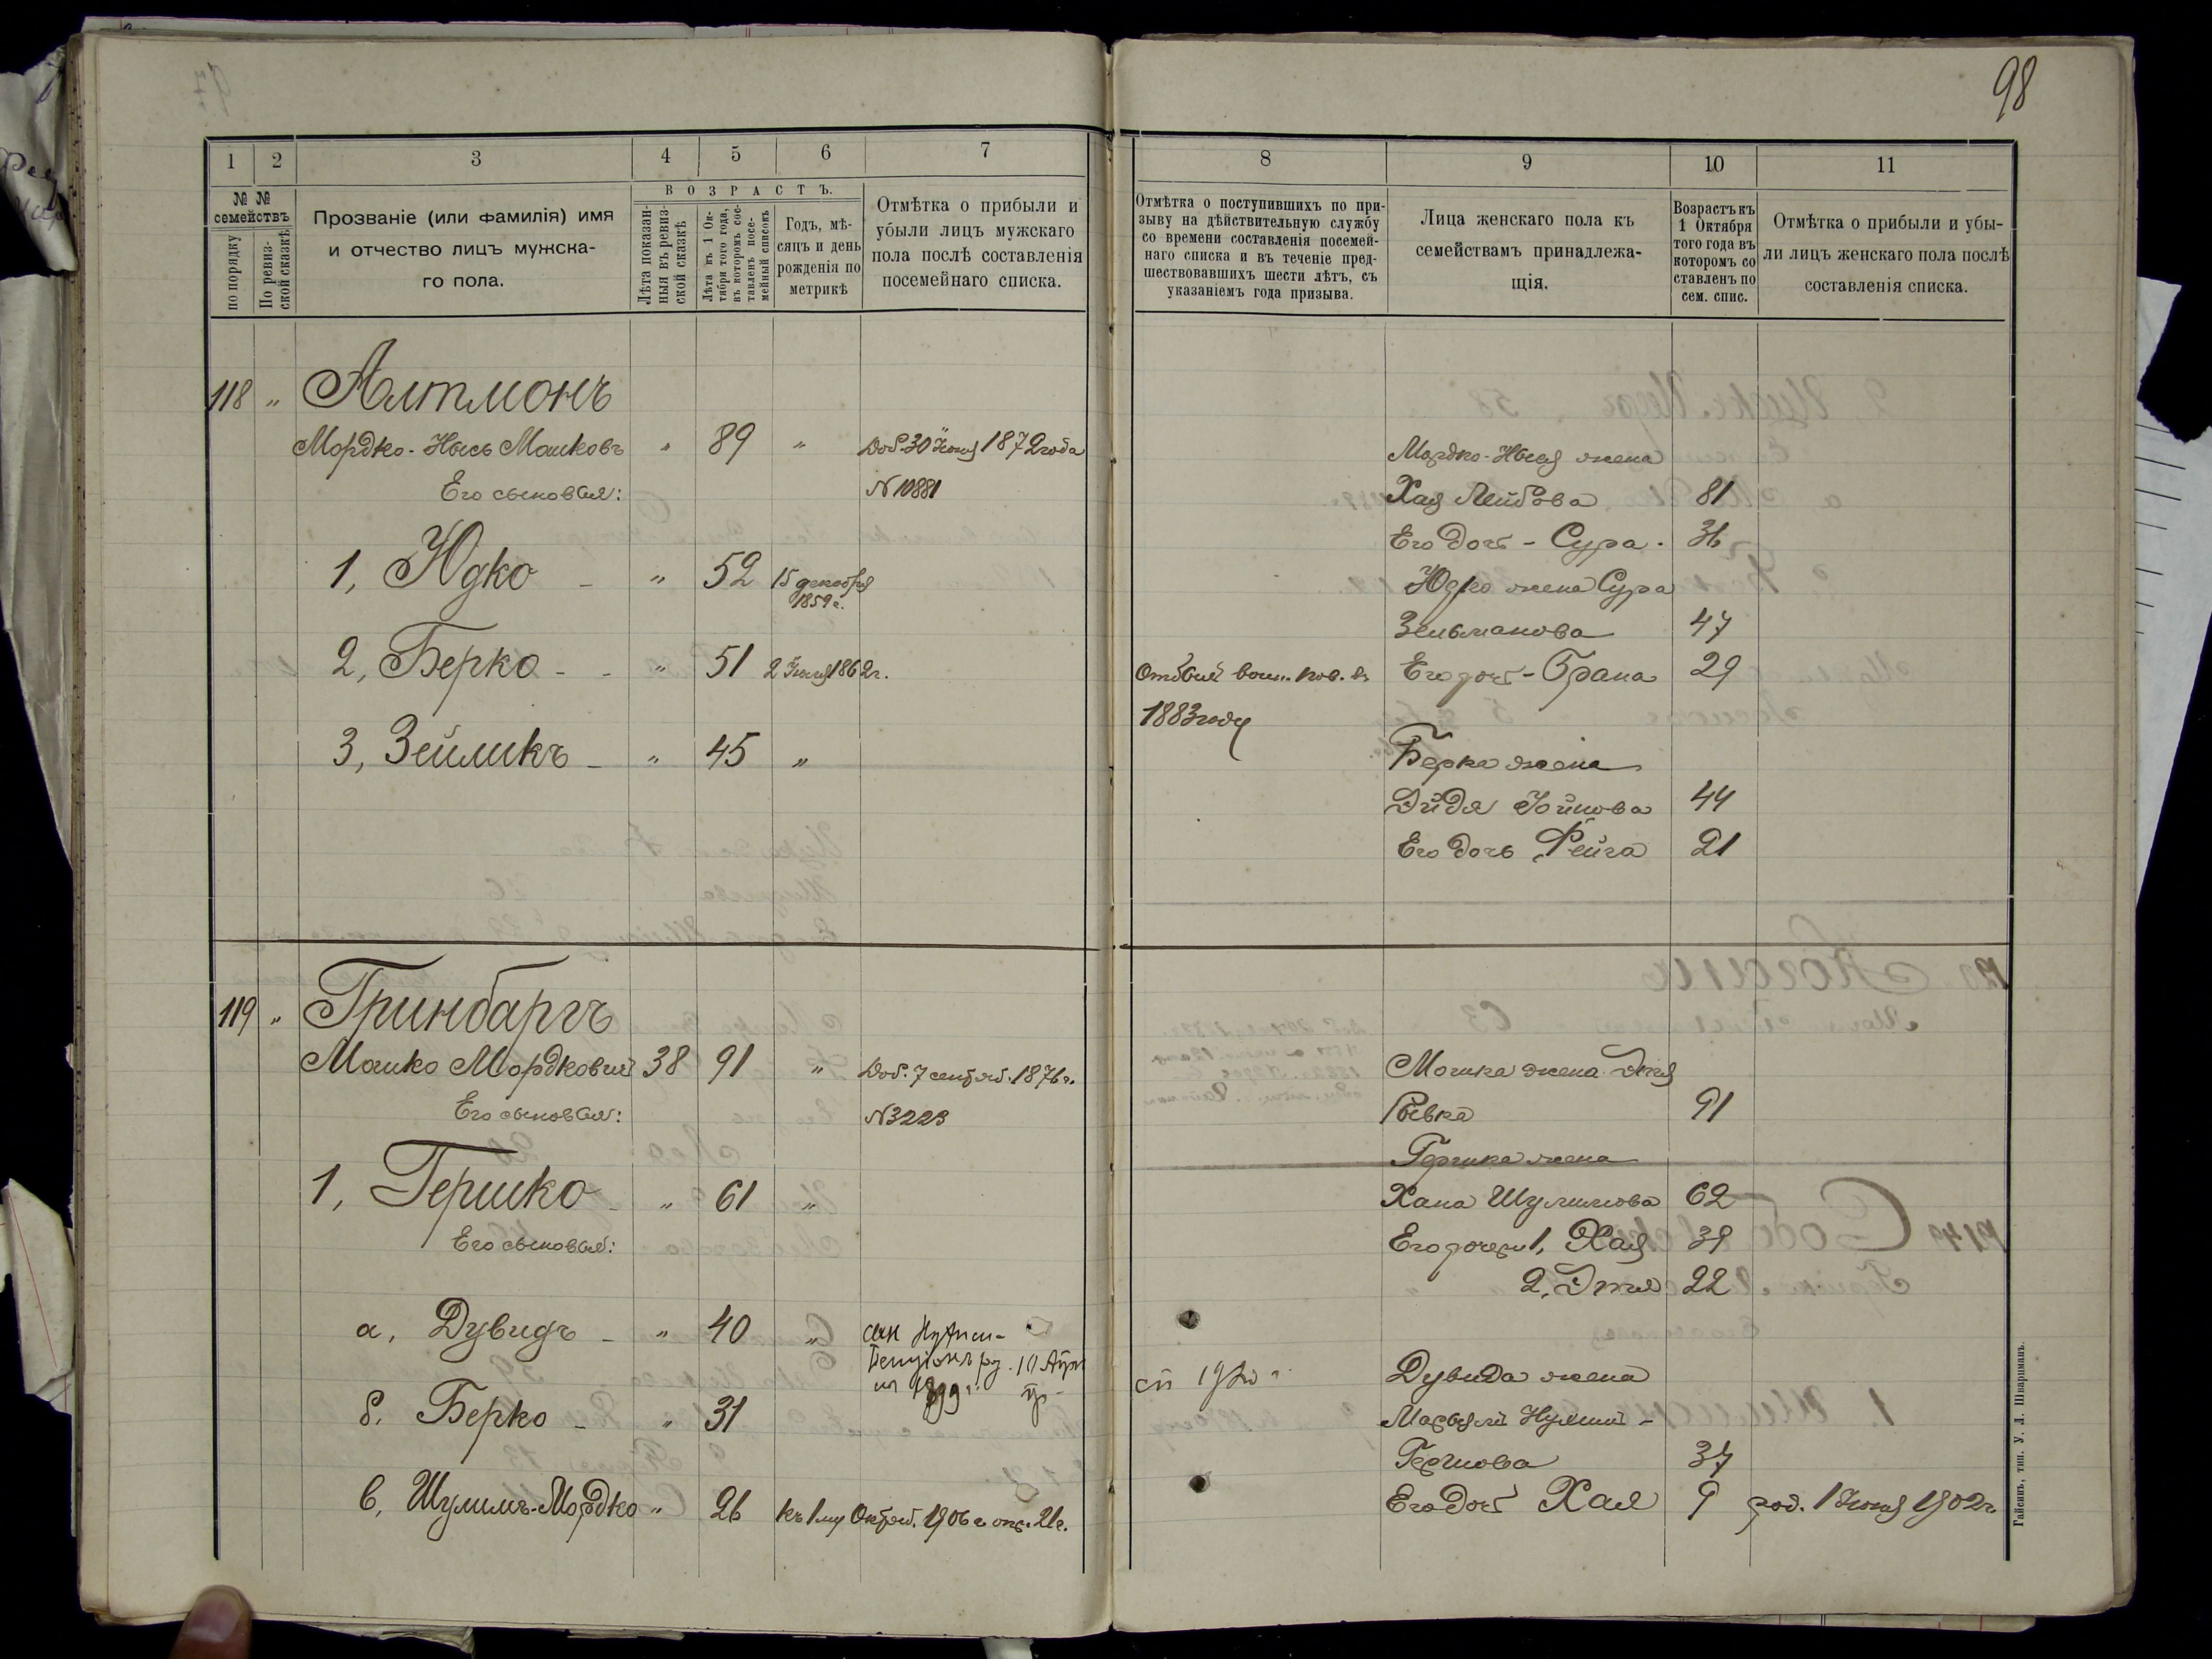 98
1
2
3
4
5
6
7
№ №
семействъ
по порядку
По ревиз-
ской сказкѣ
Прозваніе (или фамилія) имя
и отчество лицъ мужска-
го пола.
ВОЗРАСТЪ.
Лѣта показан-
ныя въ ревиз-
ской сказкѣ
Лѣта къ 1 Ок-
тября того года,
въ которомъ сос-
тавленъ посе-
мейный списокъ
Годъ, мѣ-
сяцъ и день
рожденія по
метрикѣ
Отмѣтка о прибыли и
убыли лицъ мужскаго
пола послѣ составленія
посемейнаго списка.
118 „ Алтмонъ
Мордко-Нысь Мошковъ „ 89 „ Доб. 30 Іюня 1872 года
Его сыновья: N 10881
1, Юдко - „ 52 15 декабря
1859 г.
2, Берко - - „ 51 2 Іюня 1862 г.
3, Зейликъ - „ 45 „
119 „ Гринбаргъ
Мошко Мордковичъ 38 91 „ Доб. 7 сентяб. 1876 г.
Его сыновья: N 3223
1, Гершко - „ 61 „
Его сыновья:
а, Дувидъ - „ 40 „
1899 г.
б. Берко - „ 31
в, Шулимъ-Мордко „ 26 къ 1му Октяб. 1906 г. опр. 21 г.
8
9
10
11
Отмѣтка о поступившихъ по при-
зыву на дѣйствительную службу
со времени составленія посемей-
наго списка и въ теченіе пред-
шествовавшихъ шести лѣтъ, съ
указаніемъ года призыва.
Лица женскаго пола къ
семействамъ принадлежа-
щія.
Возрастъ къ
1 Октября
того года въ
которомъ со
ставленъ по
сем. спис.
Отмѣтка о прибыли и убы-
ли лицъ женскаго пола послѣ
составленія списка.
Мордко-Ныся жена
Хая Лейбова 81
Его дочь - Сура. 36
Юдко жена Сура
Зельманова 47
Отбылъ воин. пов. въ Его дочь - Брана 29
1883 году
Берка жена
Эйдя Іойнова 44
Его дочь Фейга 21
Мошка жена
Ривка 91
Гершка жена
Хана Шулимова 62
Его дочери 1, Хая 39
2, Этля 22
Дувида жена
Гершова 37
Его дочь Хая 9 род. 1 Іюня 1902 г.
Гайсинъ, тип. У. Л. Шварцманъ.